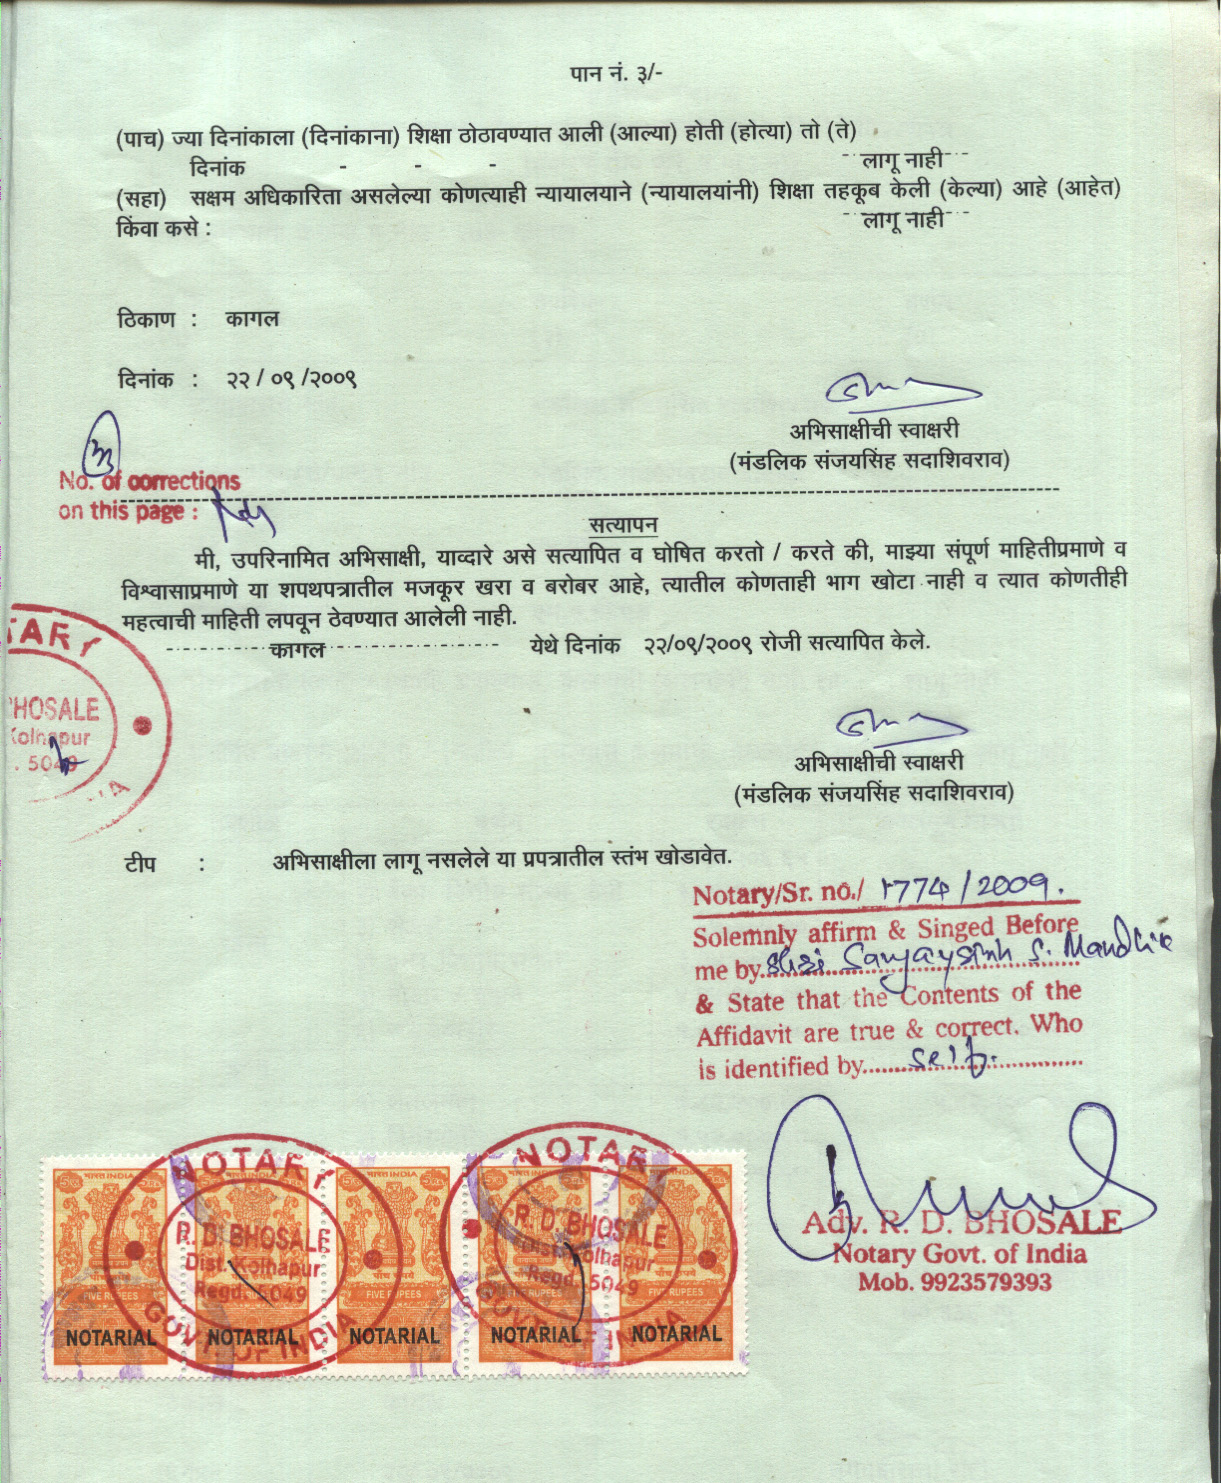 पान नं. ३/-
(पाच) ज्या दिनांकाला (दिनांकाना) शिक्षा ठोठावण्यात आली (आल्या) होती (होत्या) तो (ते)
दिनांक - - - लागू नाही
(सहा) सक्षम अधिकारिता असलेल्या कोणत्याही न्यायालयाने (न्यायालयांनी) शिक्षा तहकूब केली (केल्या) आहे (आहेत)
किंवा कसे : लागू नाही
ठिकाण : कागल
दिनांक : २२ / ०९ /२००९
अभिसाक्षीची स्वाक्षरी
(मंडलिक संजयसिंह सदाशिवराव)
No. of corrections
on this page :
सत्यापन
मी, उपरिनामित अभिसाक्षी, याव्दारे असे सत्यापित व घोषित करतो / करते की, माझ्या संपूर्ण माहितीप्रमाणे व
विश्वासाप्रमाणे या शपथपत्रातील मजकूर खरा व बरोबर आहे, त्यातील कोणताही भाग खोटा नाही व त्यात कोणतीही
महत्वाची माहिती लपवून ठेवण्यात आलेली नाही.
कागल येथे दिनांक २२/०९/२००९ रोजी सत्यापित केले.
TARY
BHOSALE
Kolhapur
. 5049
अभिसाक्षीची स्वाक्षरी
(मंडलिक संजयसिंह सदाशिवराव)
टीप : अभिसाक्षीला लागू नसलेले या प्रपत्रातील स्तंभ खोडावेत.
Notary/Sr. no./ 1774/2009.
Solemnly affirm & Singed Before
me by Shri Sanjaysinh S. Mandlik
& State that the Contents of the
Affidavit are true & correct. Who
is identified by self.
Adv. R. D. BHOSALE
Notary Govt. of India
Mob. 9923579393
NOTARY
R. D. BHOSALE
Dist. Kolhapur
Regd. 5049
GOVT. OF INDIA
NOTARY
R. D. BHOSALE
Dist. Kolhapur
Regd. 5049
GOVT. OF INDIA
भारत INDIA
पाँच रुपये
FIVE RUPEES
NOTARIAL NOTARIAL NOTARIAL NOTARIAL NOTARIAL